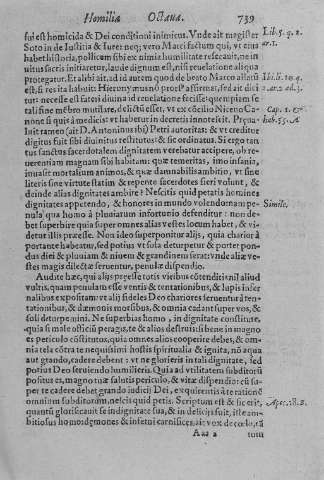 Homilia Octaua. 739
sui est homicida & Dei conditioni inimicus. Vnde ait magister
Soto in de Iustitia & Iure: neq; vero Marci factum qui, vt eius
habet historia, pollicum sibi ex nimia humilitate resecauit, ne in
uitus sacris initiaretur, laude dignum est, nisi reuelatione aliqua
protegatur. Et alibi ait, ad id autem quod de beato Marco allatū
est, si res ita habuit: Hieronymus nō protesę affirmat, sed ait dici
tur: necesse est fateri diuina id reuelatione fecisse: quempiam se
tali sine mēbro mutilare, delictū esset, vt ex cōcilio Niceno Ca-
none si quis à medicis: vt habetur in decretis innotescit. Præua
luit tamen (ait D. Antoninus ibi) Petri autoritas: & vt creditur
digitus fuit sibi diuinitus restitutus: & sic ordinatus. Si ergo tan
tus sanctus sacerdotalem dignitatem verebatur accipere, ob re-
uerentiam magnam sibi habitam: quæ temeritas, imo insania,
inuasit mortalium animos, & quæ damnabilis ambitio, vt sine
literis sine virtute statim & repente sacerdotes fieri volunt, &
deinde alias dignitates ambire? Nescitis quid petatis homines
dignitates appetendo, & honores in mundo volendo: nam pe-
nula qua homo à pluuiarum infortunio defenditur: non de-
bet superbire quia super omnes alias vestes locum habet, & vi-
detur illis præesse. Non ideo superponitur alijs, quia charior à
portante habeatur, sed potius vt sola deturpetur & portet pon-
dus diei & pluuiam & niuem & grandinem ferat: vnde aliæ ve-
stes magis dilectæ seruentur, penulæ dispendio.
Audite hæc, qui alijs præesse totis viribus cōtenditis: nil aliud
vultis, quam penulam esse ventis & tentationibus, & lupis infer
nalibus expositam: vt alij fideles Deo chariores seruentur à ten-
tationibus, & dæmonis morsibus, & omnia cadant super vos, &
soli deturpemini. Ne superbias homo, in dignitate constitute,
quia si male officiū peragis, te & alios destruis: si bene in magno
es periculo cōstitutus, quia omnes alios cooperire debes, & om-
nia tela cōtra te nequissimi hostis spiritualia & ignita, nō aqua
aut grando, cadere debent: vt ne glorieris in tali dignitate, sed
potius Deo seruiendo humilieris. Quia ad vtilitatem subditorū
positus es, magno tuæ salutis periculo, & vitæ dispendio: cū sa-
per te cadere debet grando iudicij Dei, exquirentis à te rationē
omnium subditorum, nescis quid petis. Scriptum est & sic erit,
quantū glorificauit se in dignitate sua, & in delicijs fuit, ille am-
bitiosus homo: dęmones & inferni carnifices, ait vox de cœlo, tā
Aaa 2 tum
Lib. 5. q. 2.
ar. 1.
Ibi li. 10. q.
1. ar. 2. ad 3.
Cap. 2. ex
hab. 55. d
Simile.
Apoc. 18. 2.